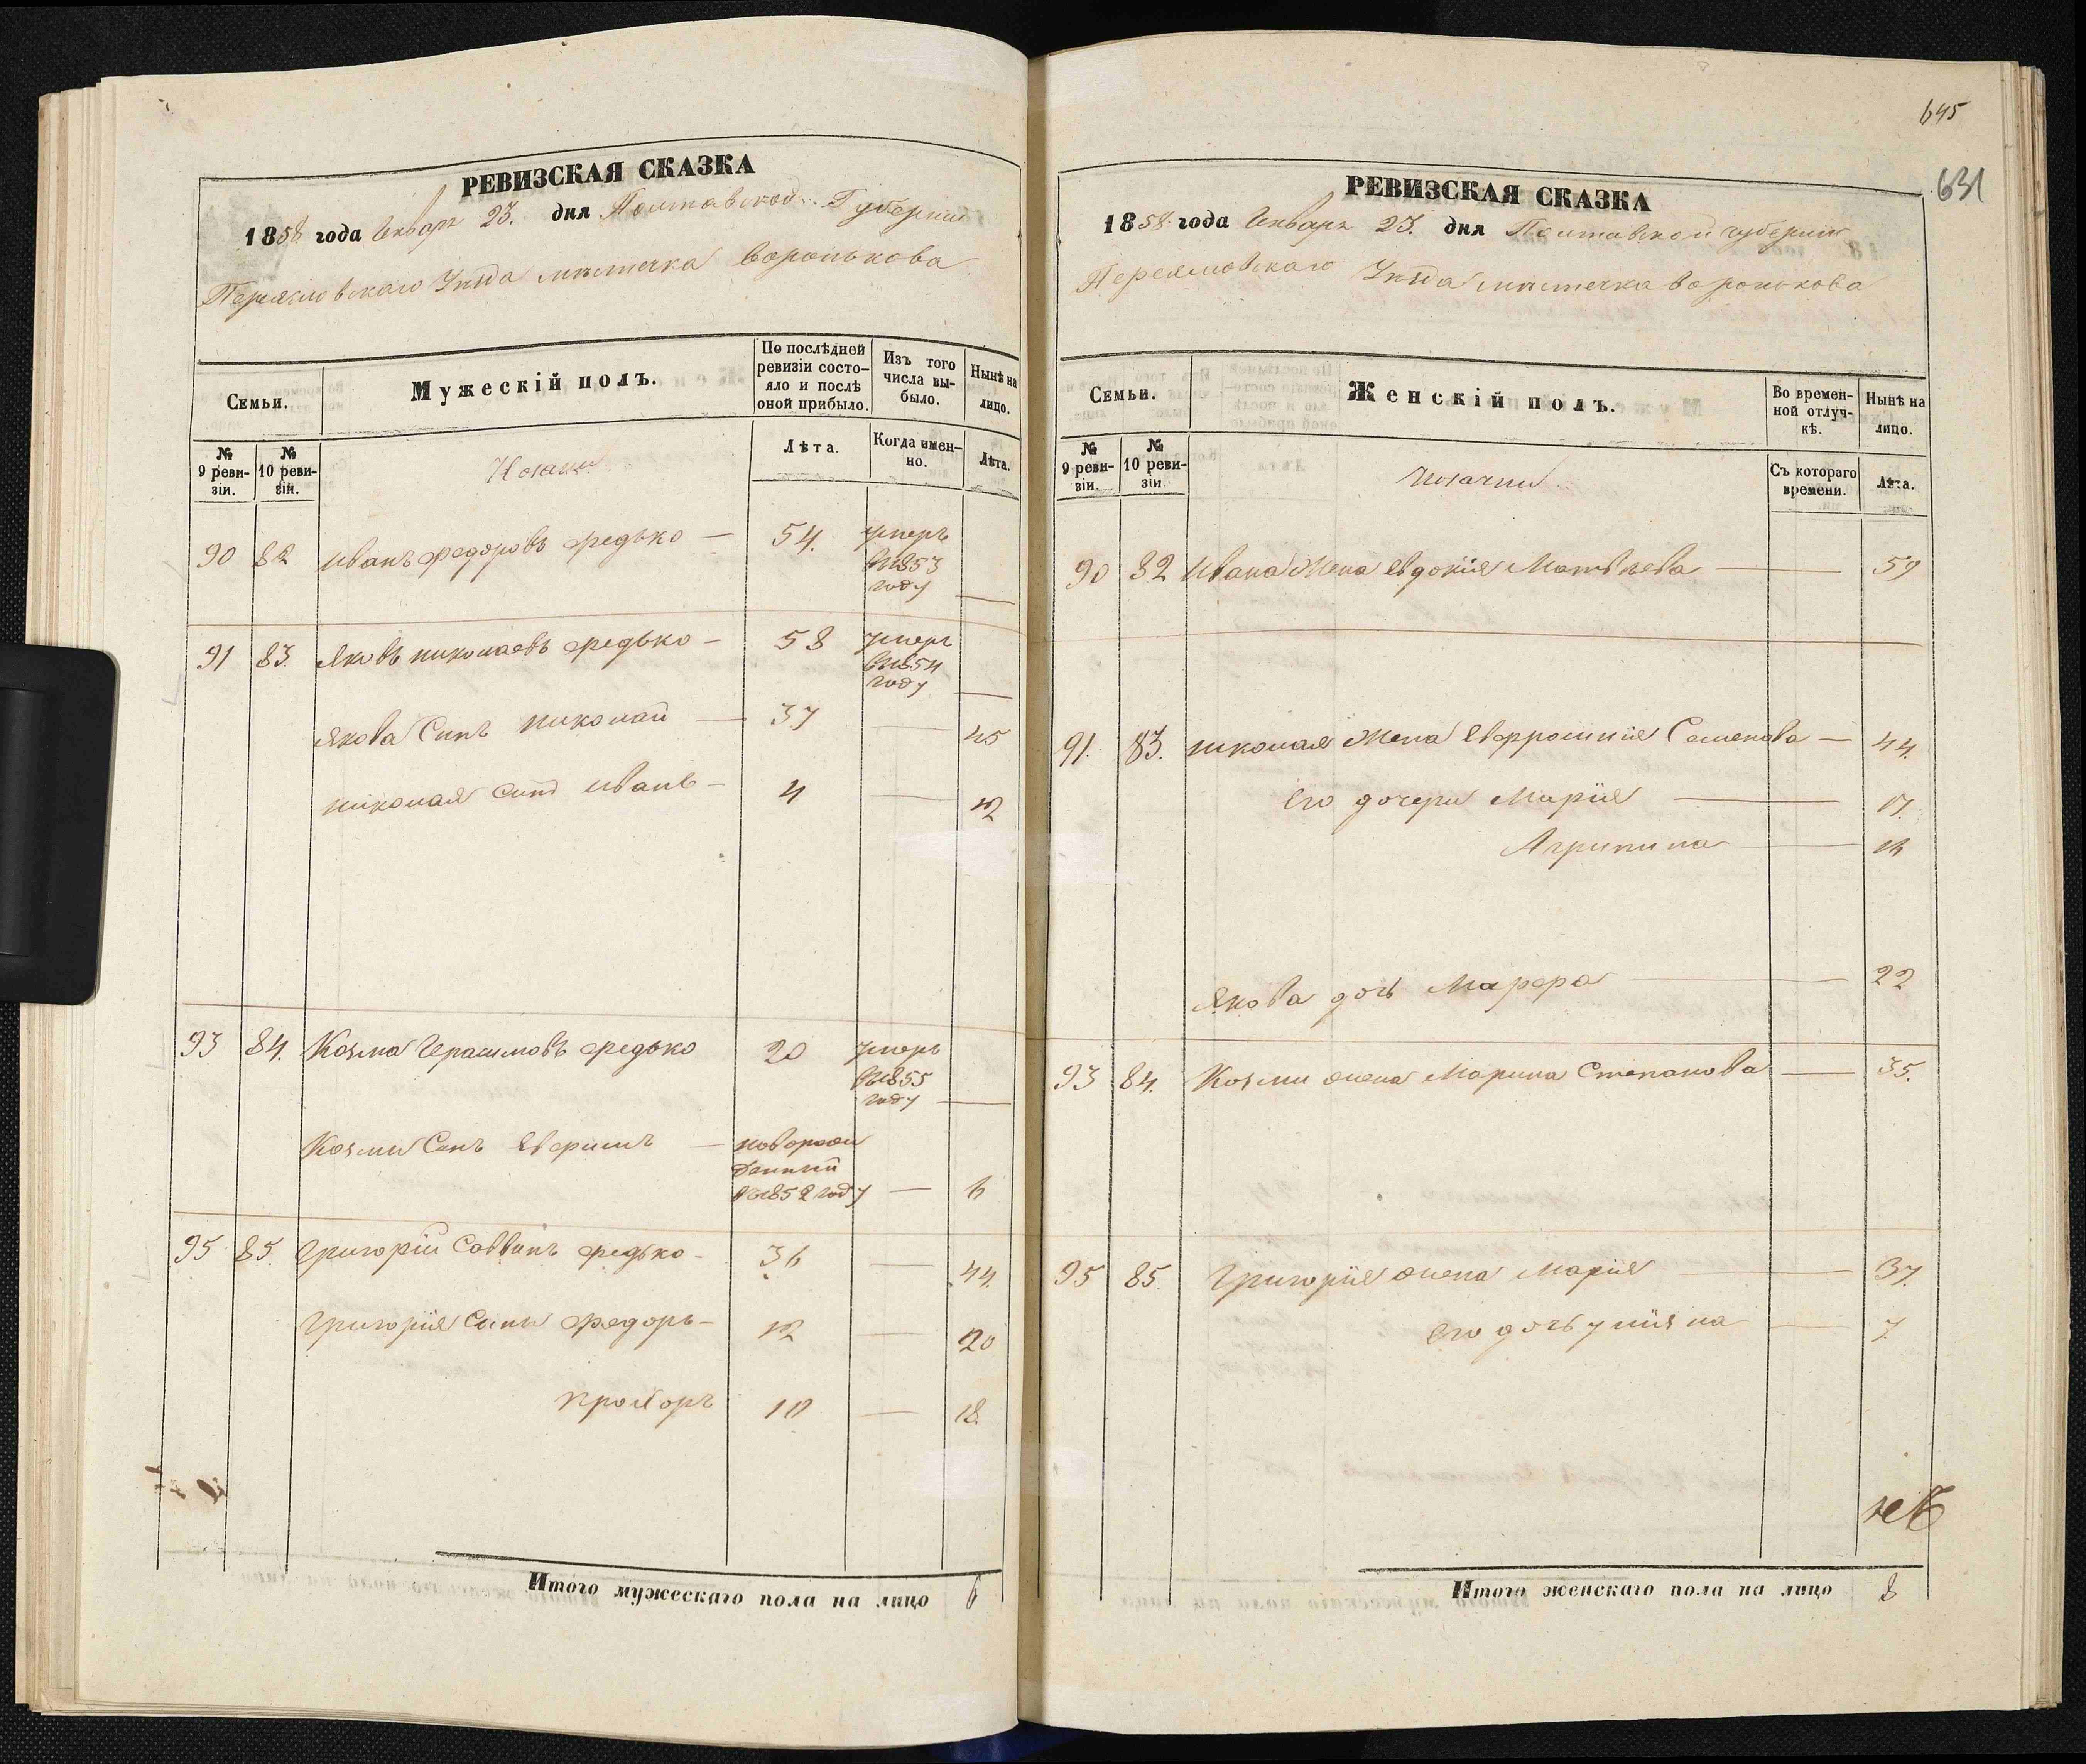 РЕВИЗСКАЯ СКАЗКА
1858 года Генваря 23. дня Полтавской Губернии
Переясловскаго Уѣзда мѣстечка Воронькова
Семьи.
Мужескій полъ.
По послѣдней ревизіи состояло и послѣ оной прибыло.
Изъ того числа выбыло.
Нынѣ на лицо.
№ 9 ревизіи.
№ 10 ревизіи.
Козаки
Лѣта.
Когда именно.
Лѣта.
90 82 Иванъ Федоровъ Редько — 54. умеръ
в 1853
году —
91 83. Яковъ Николаевъ Редько — 58 умеръ
в 1854
году —
Якова Синъ Николай — 37 — 45
Николая Синъ Иванъ — 4 — 12
93 84. Козма Герасимовъ Редько 20 умеръ
в 1855
году —
Козми Синъ — новорож
денний
в 1852 году — 6
95 85. Григорій Саввинъ Редько — 36 — 44.
Григорія Сини Федоръ — 12 — 20
Прохоръ 10 — 18.
Итого мужескаго пола на лицо 6
645
631
РЕВИЗСКАЯ СКАЗКА
1858 года Генваря 23. дня Полтавской губернии
Переясловскаго Уѣзда мѣстечка Воронькова
Семьи.
Женскій полъ.
Во временной отлучкѣ.
Нынѣ на лицо.
№ 9 ревизіи.
№ 10 ревизіи
Козачки
Съ котораго времени.
Лѣта.
90 82 Ивана Жена Евдокія Матвѣева — 59
91. 83. Николая Жена Евфросинія Семенова — 44.
Его дочери Марія — 17.
Агрипина — 16
Якова дочь Марфа — 22
93 84. Козми жена Марина Степанова — 35.
95 85. Григорія жена Марія — 37.
Его дочь Уліяна — 7.
Итого женскаго пола на лицо 8